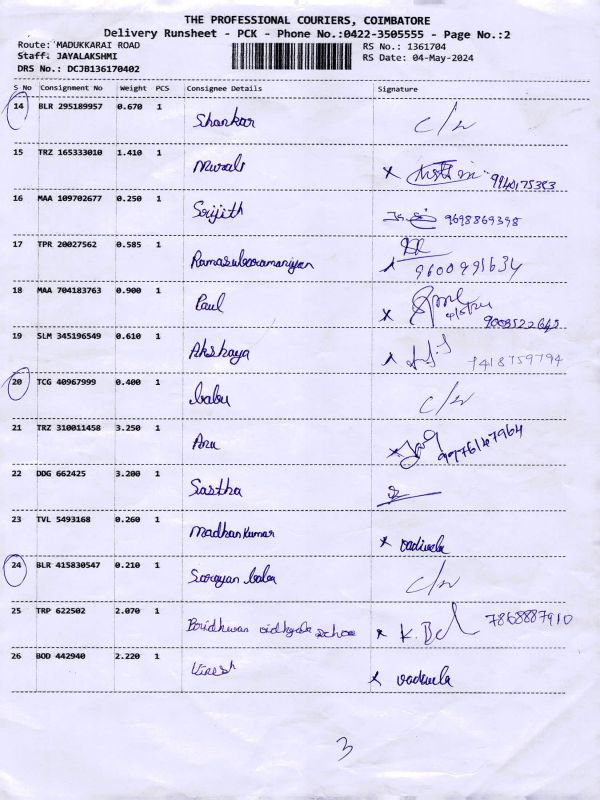 THE PROFESSIONAL COURIERS, COIMBATORE
Delivery Runsheet - PCK - Phone No.:0422-3505555 - Page No.:2
Route: MADUKKARAI ROAD RS No.: 1361704
Staff. JAYALAKSHMI RS Date: 04-May-2024
DRS No.: DCJB136170402
S No Consignment No Weight PCS Consignee Details Signature
14 BLR 295189957 0.670 1 Shankar
15 TRZ 165333010 1.410 1 Murali x 9940175383
16 MAA 109702677 0.250 1 Srijith 9698869398
17 TPR 20027562 0.585 1 Ramasubramaniyan 9600991634
18 MAA 704183763 0.900 1 Paul x
19 SLM 345196549 0.610 1 Akshaya x 7418759794
20 TCG 40967999 0.400 1 babu
21 TRZ 310011458 3.250 1 Anu
22 DDG 662425 3.200 1 Sastha
23 TVL 5493168 0.260 1 Madhan Kumar x vadivela
24 BLR 415830547 0.210 1 babu
25 TRP 622502 2.070 1 x 7868887910
26 BOD 442940 2.220 1 Viresh x
3